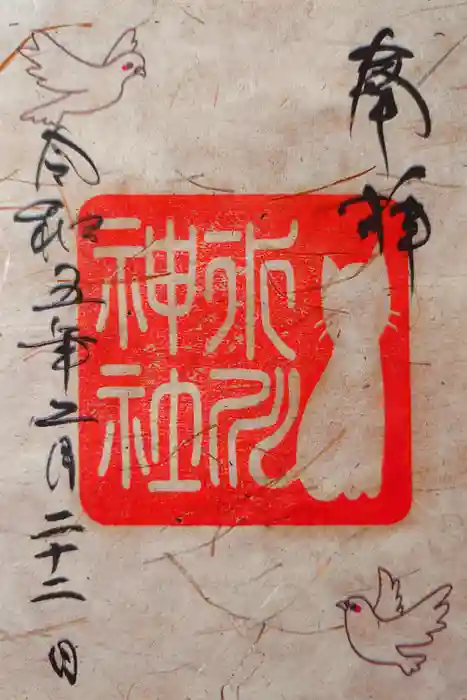 奉拝
氷川
神社
令和五年二月二十二日